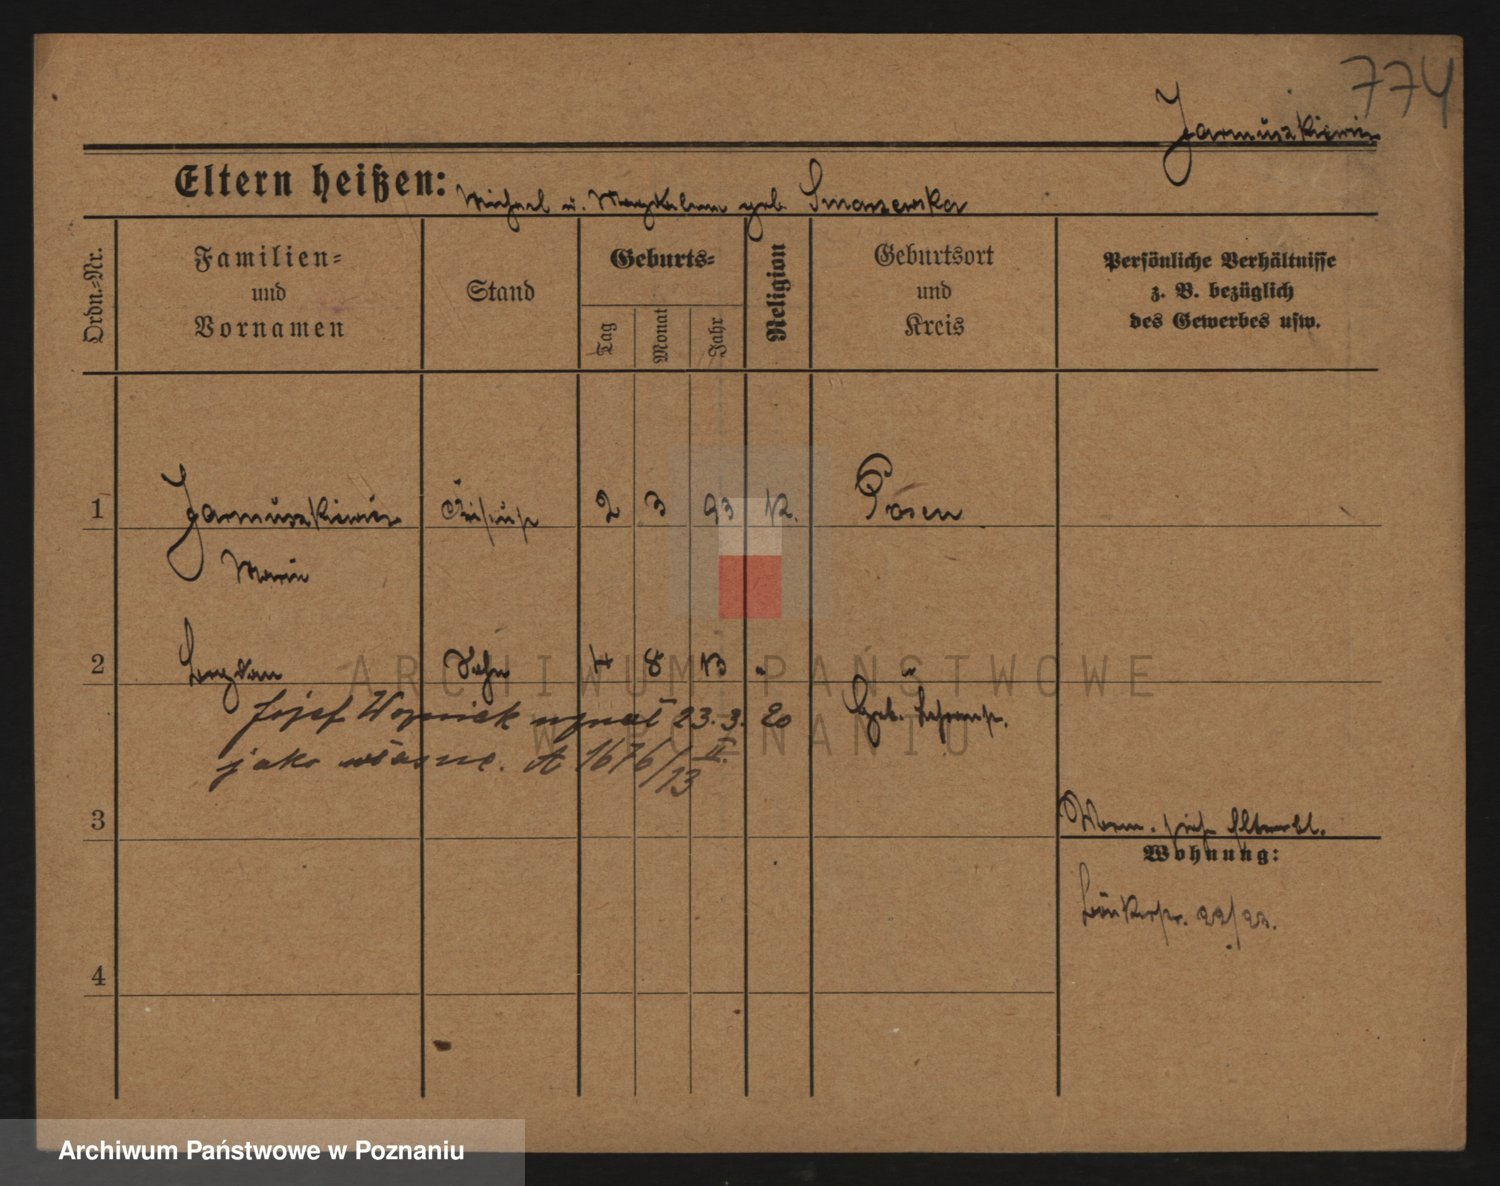 774
Jarmuszkiewicz
Eltern heißen: Michael u. Magdalena geb. Smarzewska
Ordn.-Nr.
Familien- und Vornamen
Stand
Geburts-
Tag
Monat
Jahr
Religion
Geburtsort und Kreis
Persönliche Verhältnisse
z. B. bezüglich
des Gewerbes usw.
1 Jarmuszkiewicz 2 3 93 K. Posen
Marie
2 Bogdan Sohn 4 8 13 "
Józef Woźniak uznał 23.3.20 Geb.
jako własne. A 1676/13 II.
3
Wohnung:
Bäckerstr. 22/23.
4
ARCHIWUM PAŃSTWOWE
W POZNANIU
Archiwum Państwowe w Poznaniu